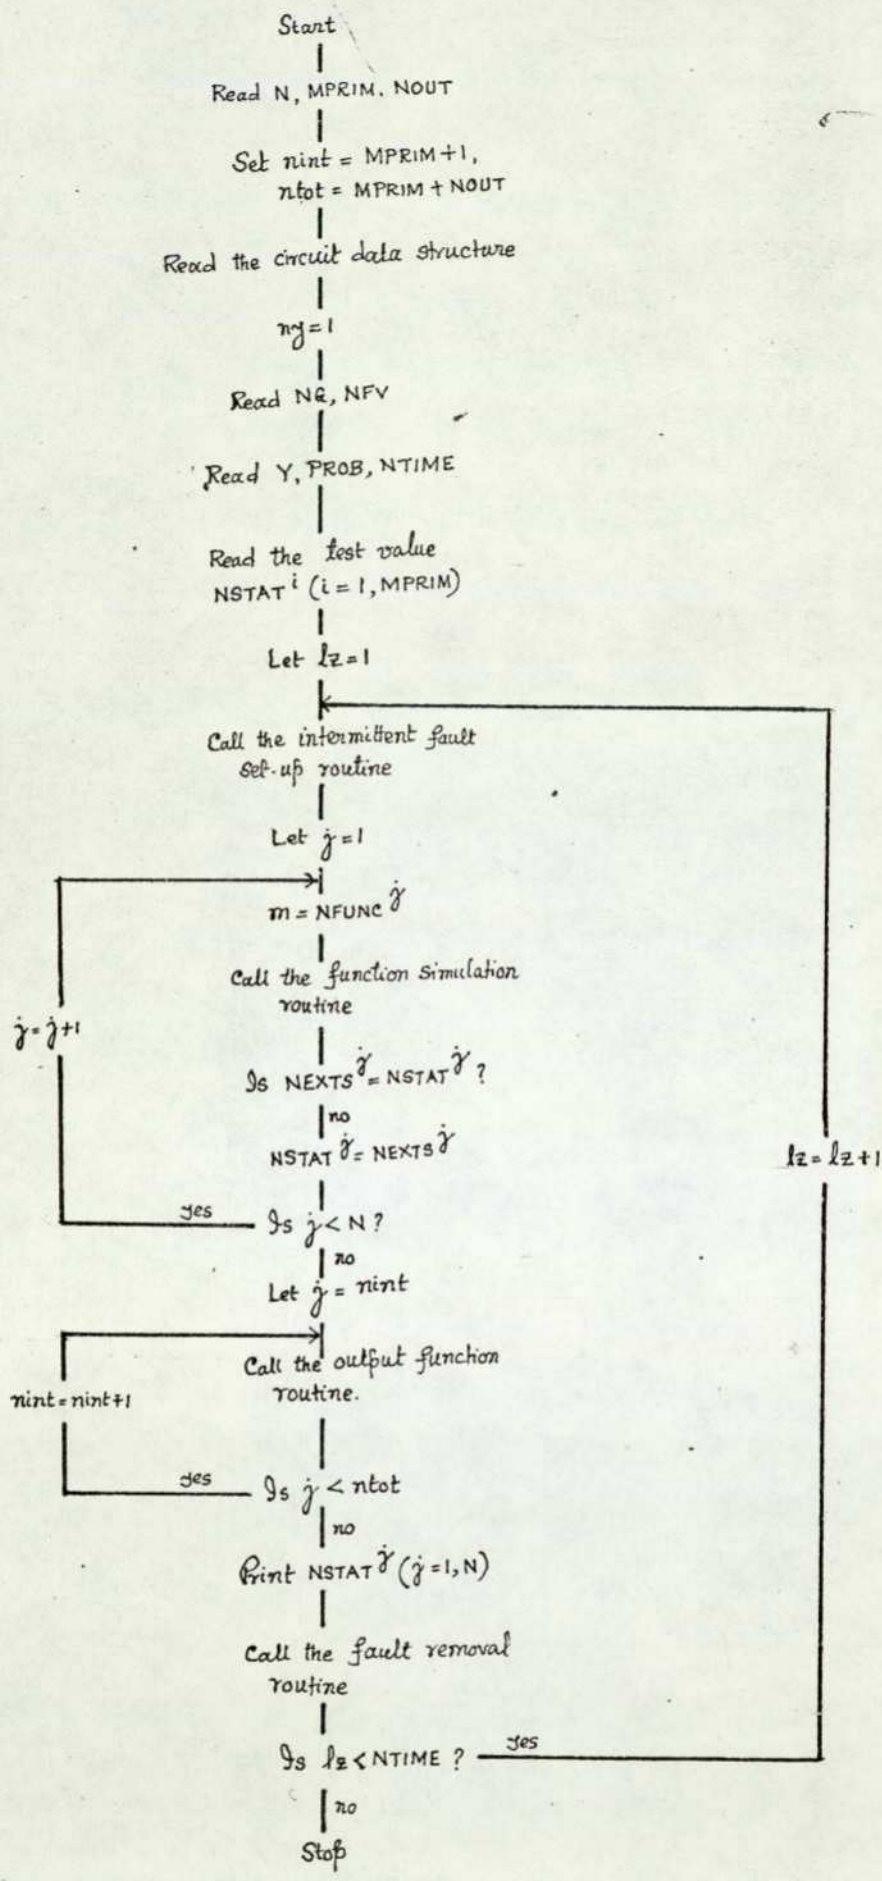 Start
Read N, MPRIM. NOUT
Set nint = MPRIM+1,
ntot = MPRIM + NOUT
Read the circuit data structure
ny=1
Read NG, NFV
Read Y, PROB, NTIME
Read the test value
NSTAT^i (i = 1, MPRIM)
Let lz=1
Call the intermittent fault
set-up routine
Let j=1
m = NFUNC^j
Call the function simulation
routine
j=j+1
Is NEXTS^j = NSTAT^j ?
no
NSTAT^j = NEXTS^j
lz=lz+1
yes
Is j < N ?
no
Let j = nint
Call the output function
routine.
nint=nint+1
yes
Is j < ntot
no
Print NSTAT^j (j=1,N)
Call the fault removal
routine
Is lz < NTIME ?
yes
no
Stop